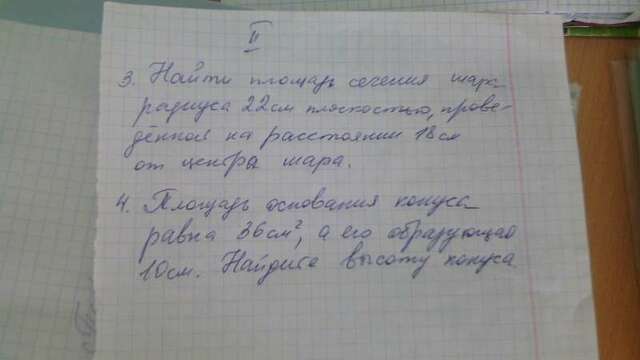 II
3. Найти площадь сечения шара
радиуса 22см плоскостью, прове-
дённой на расстоянии 18см
от центра шара.
4. Площадь основания конуса
равна 36см², а его образующая
10см. Найдите высоту конуса